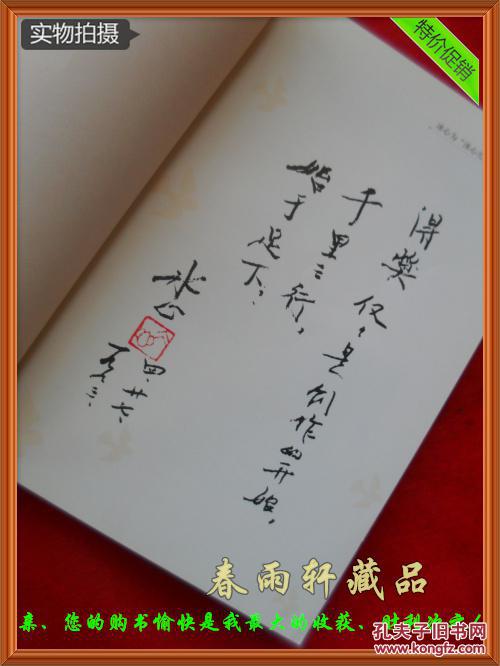 实物拍摄
特价促销
得奖仅仅是创作的开始，
千里之行，
始于足下。
冰心
四廿六
一九九三、
春雨轩藏品
亲、您的购书愉快是我最大的收获、
孔夫子旧书网
www.kongfz.com